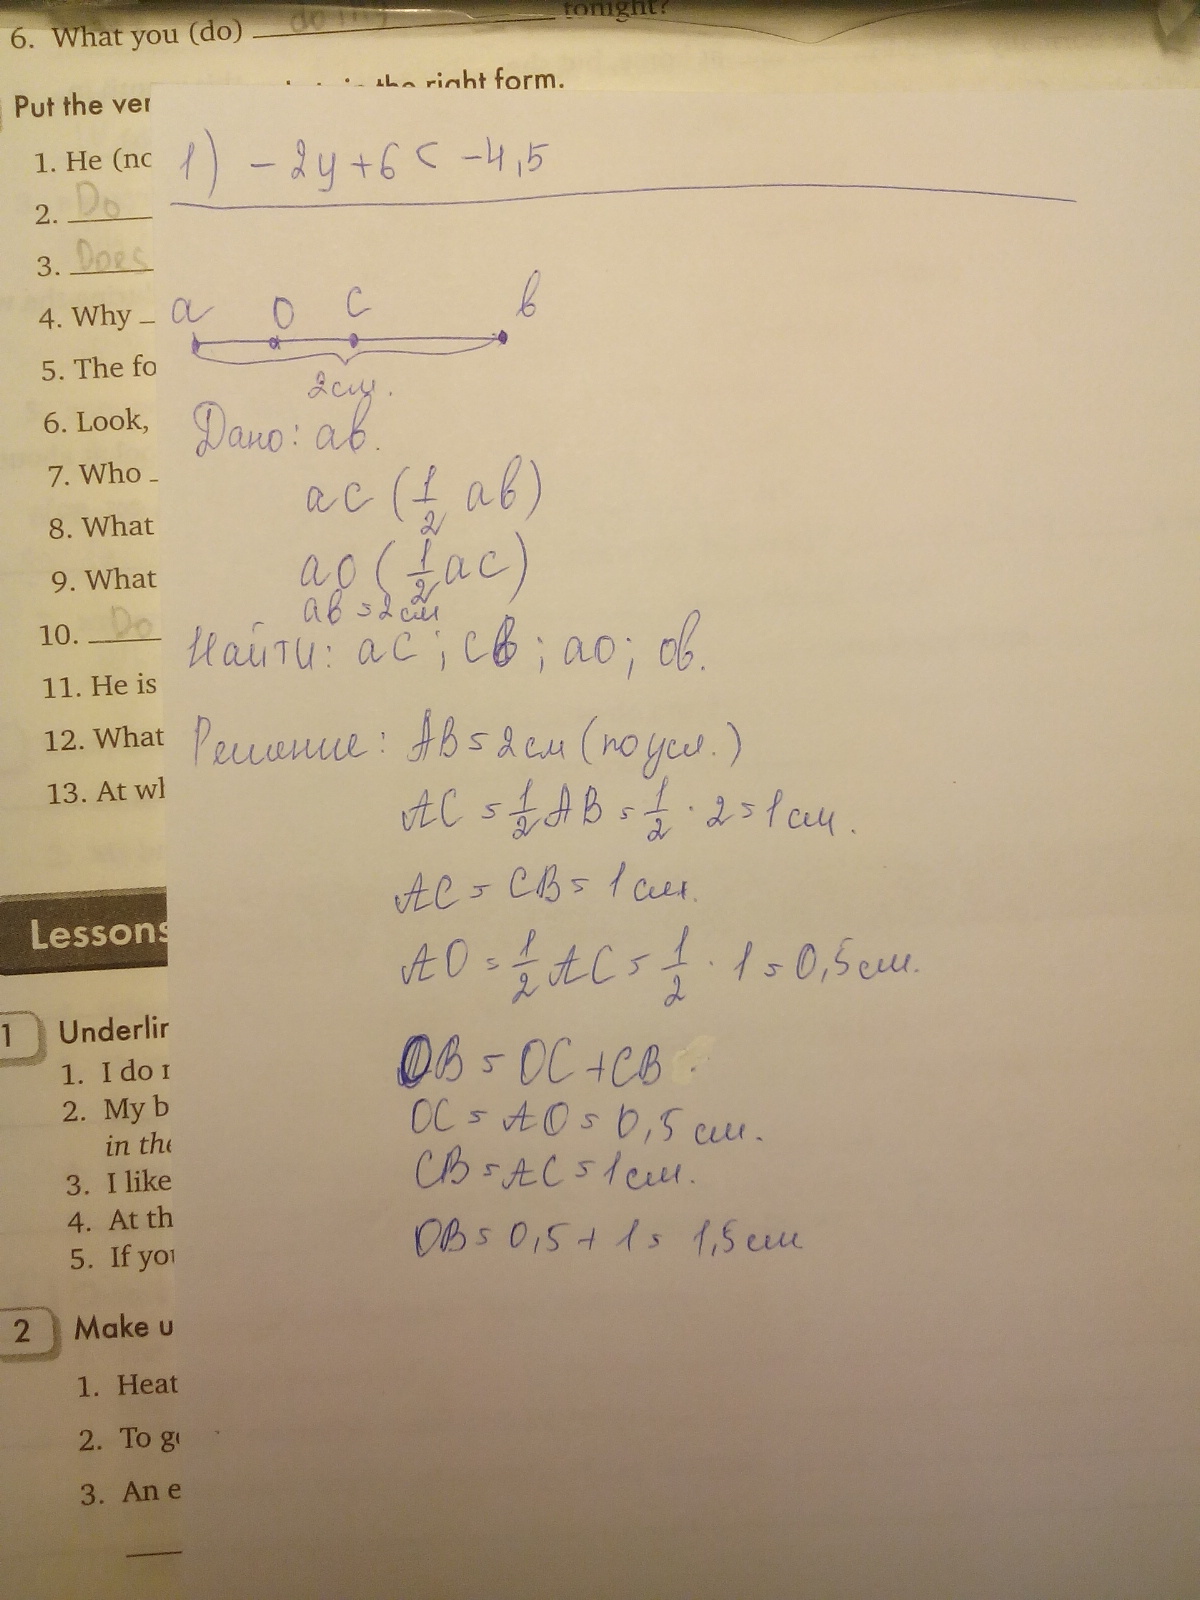 6. What you (do) doing tonight?
Put the ver the right form.
1. He (no
2. Do
3. Does
4. Why
5. The fo
6. Look,
7. Who
8. What
9. What
10. Do
11. He is
12. What
13. At wh
Lessons
1 Underlin
1. I do r
2. My b
in the
3. I like
4. At th
5. If you
2 Make u
1. Heat
2. To g
3. An e
1) -2y+6< -4,5
a O C b
2см.
Дано: ab.
ac (1/2 ab)
ao (1/2 ac)
ab = 2см
Найти: ac; cb; ao; ob.
Решение: AB = 2см (по усл.)
AC = 1/2 AB = 1/2 · 2 = 1см.
AC = CB = 1см.
AO = 1/2 AC = 1/2 · 1 = 0,5см.
OB = OC + CB
OC = AO = 0,5 см.
CB = AC = 1см.
OB = 0,5 + 1 = 1,5см